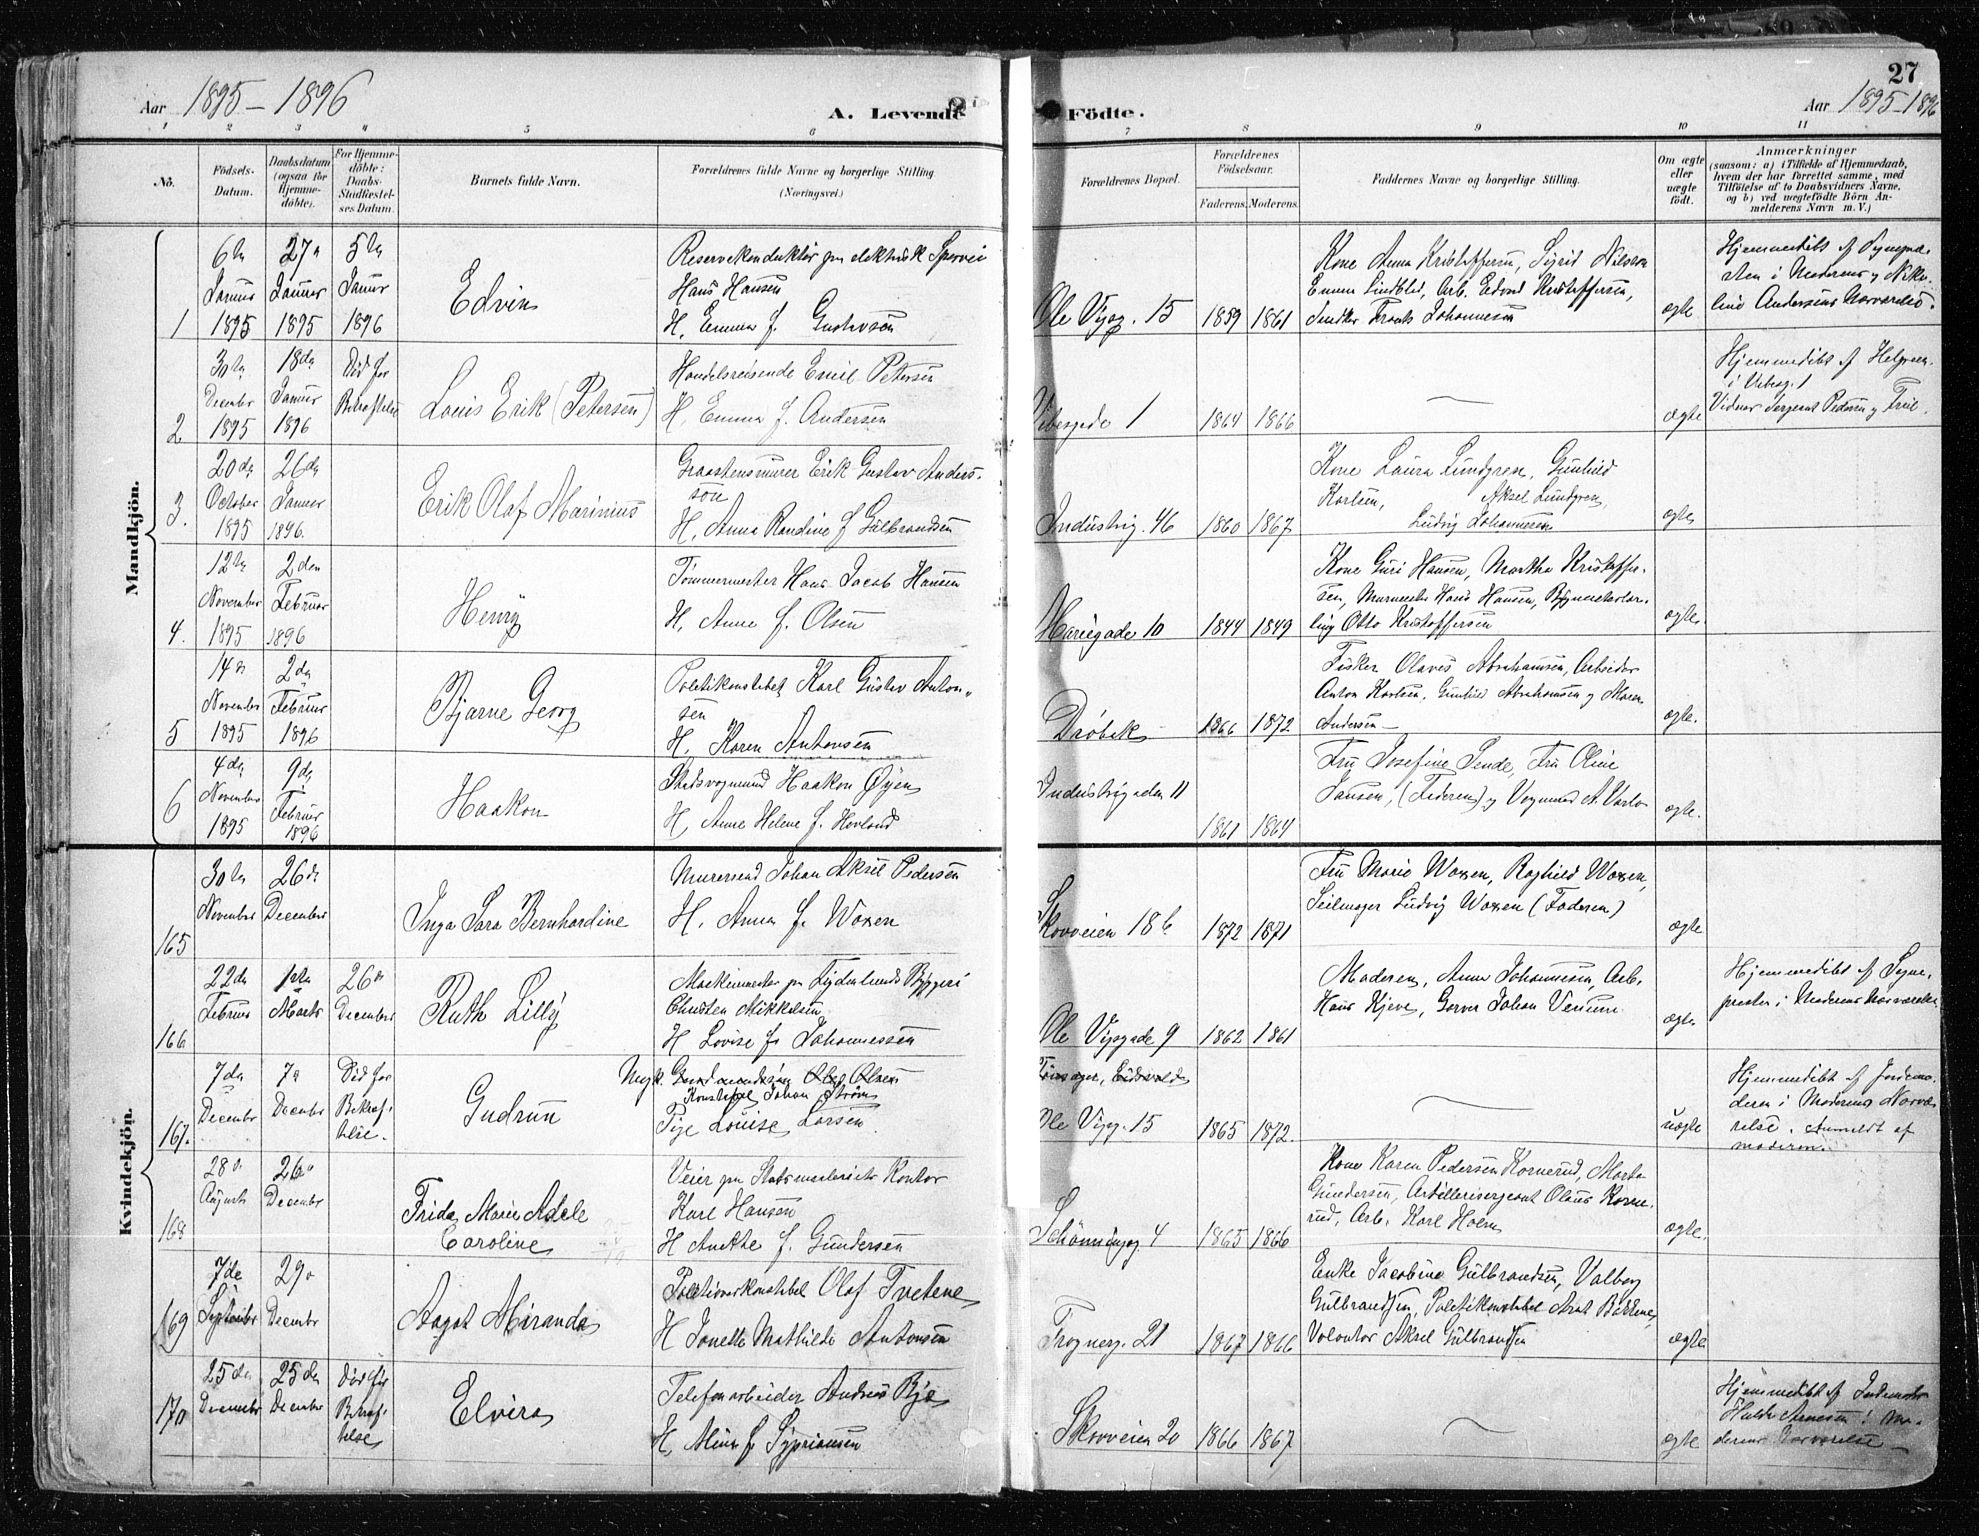 27
Aar 1895-1896
A. Levende Födte.
Aar 1895-1896
1 2 3 4 5 6 7 8 9 10 11
No.
Födsels-
Datum.
Daabsdatum
(ogsaa for
Hjemme-
döbte).
For Hjemme-
döbte:
Daabs-
Stadfæstel-
ses Datum.
Barnets fulde Navn.
Forældrenes fulde Navne og borgerlige Stilling
(Næringsvei.)
Forældrenes Bopæl.
Forældrenes
Födselsaar.
Faderens. Moderens.
Faddernes Navne og borgerlige Stilling.
Om ægte
eller
uægte
födt.
Anmærkninger
(saasom: a) i Tilfælde af Hjemmedaab,
hvem der har forrettet samme, med
Tilföielse af to Daabsvidners Navne,
og b) ved uægtefödte Börn An-
melderens Navn m. V.)
Mandkjön.
1
6te
Januar
1895
27
Januar
1895
5te
Januar
1896
Edvin
Reservekonduktør paa elektrisk Sporvei
Hans Hansen
H. Emma f. Gustavsen
Ole Vigsg. 15
1859 1861
Kone Anna Kristoffersen, Sigrid Nilsson
Emma Lindblad, Arb. Edvard Kristoffersen,
Snedker Frants Johannesen
ægte
Hjemmedøbt af
i Moderens og
Andersens Nærværelse.
2
30te
December
1895
18de
Januar
1896
Død før
Bekræftelse
Louis Erik (Petersen)
Handelsreisende Emil Petersen
H. Emma f. Andersen
Vibesgade 1
1864 1866
ægte
Hjemmedøbt af
i Vibesg. 1
Vidner Sergeant Pedersen og
3.
20de
October
1895
26de
Januar
1896.
Erik Olaf Marinius
Graastensmurer Erik Gustav Anders-
son
H. Anna Randine f. Gulbrandsen
Industrig. 46
1860 1867
Kone Laura Lundgren, Gunhild
Karlsen, Aksel Lundgren,
Ludvig Johannesen
ægte
4.
12te
November
1895
2den
Februar
1896
Henry
Tømmermester Hans Jacob Hansen
H. Anne f. Olsen
Mariegade 10
1844 1849
Kone Guri Hansen, Martha Kristoffer-
sen, Murmester Hans Hansen, Bygmesterlær-
ling Otto Kristoffersen
ægte.
5
14de
November
1895
2de
Februar
1896
Bjarne Georg
Politikonstabel Karl Gustav Anton-
sen
H. Karen Antonsen
Drøbak
1866 1872
Fisker Olaves Abrahamsen, Arbeider
Anton Karlsen, Gunhild Abrahamsen og Maren
Andersen
ægte.
6
4de
November
1895
9de
Februar
1896
Haakon
Stadsvognmand Haakon Øyen
H. Anne Helene f. Hovland
Industrigaden 11
1861 1864
Fru Josefine Sende, Fru Oline
Jansen, (Faderen) og Vognmand A.
ægte.
Kvindekjön.
165
30te
November
26de
December
Inga Sara Bernhardine
Murersvend Johan Aksel Pedersen
H. Anna f. Woxen
Skovveien 18b.
1872 1871
Fru Marie Woxen, Raghild Woxen,
Seilmager Ludvig Woxen (Faderen)
ægte
166
22de
Februar
1ste
Marts
26de
December
Ruth Lilly
Maskinmester paa Frydenlunds Bryggeri
Christen Mikkelsen
H. Lovise f. Johannessen
Ole Vigsgade 9
1862 1861
Moderen, Anna Johannesen, Arb.
Hans Kjeve, Garver Johan
ægte
Hjemmedøbt af Sogne-
presten i Moderens Nærværelse
167.
7de
December
7de
December
Død før
Bekræf-
telse.
Gudrun
Ungk. Olsen
Konstabel Johan Strøm
Pige Louise Larsen
Ole Vigsg. 15
1865 1872.
uægte
Hjemmedøbt af Jordemo-
deren i Moderens Nærvæ-
relse. Anmeldt af
moderen.
168
28de
August
26de
December
Frida Marie Adele
Caroline
Veier paa Kontor
Karl Hansen
H Anethe f. Gundersen
4
1865 1866
Kone Karen Pedersen Kornerud, Marta
Gundersen, Artillerisergeant Olaus Korne-
rud, Arb. Karl Holm
ægte.
169
7de
September
29de
December
Aagot Miranda
Politioverkonstabel Olaf Tvetene
H Janette Mathilde Antonsen
Frognerg. 21
1867 1866
Enke Jacobine Gulbrandsen, Valborg
Gulbrandsen, Politikonstabel
Volontør Aksel Gulbrandsen
ægte
170
25de
December
25de
December
Død før
Bekræf-
telse
Elvira
Telefonarbeider Andreas Bjø
H. Alma f. Syprianssen
Skovveien 20
1866 1867
ægte
Hjemmedøbt af Jordemoder
i Mo-
derens Nærværelse